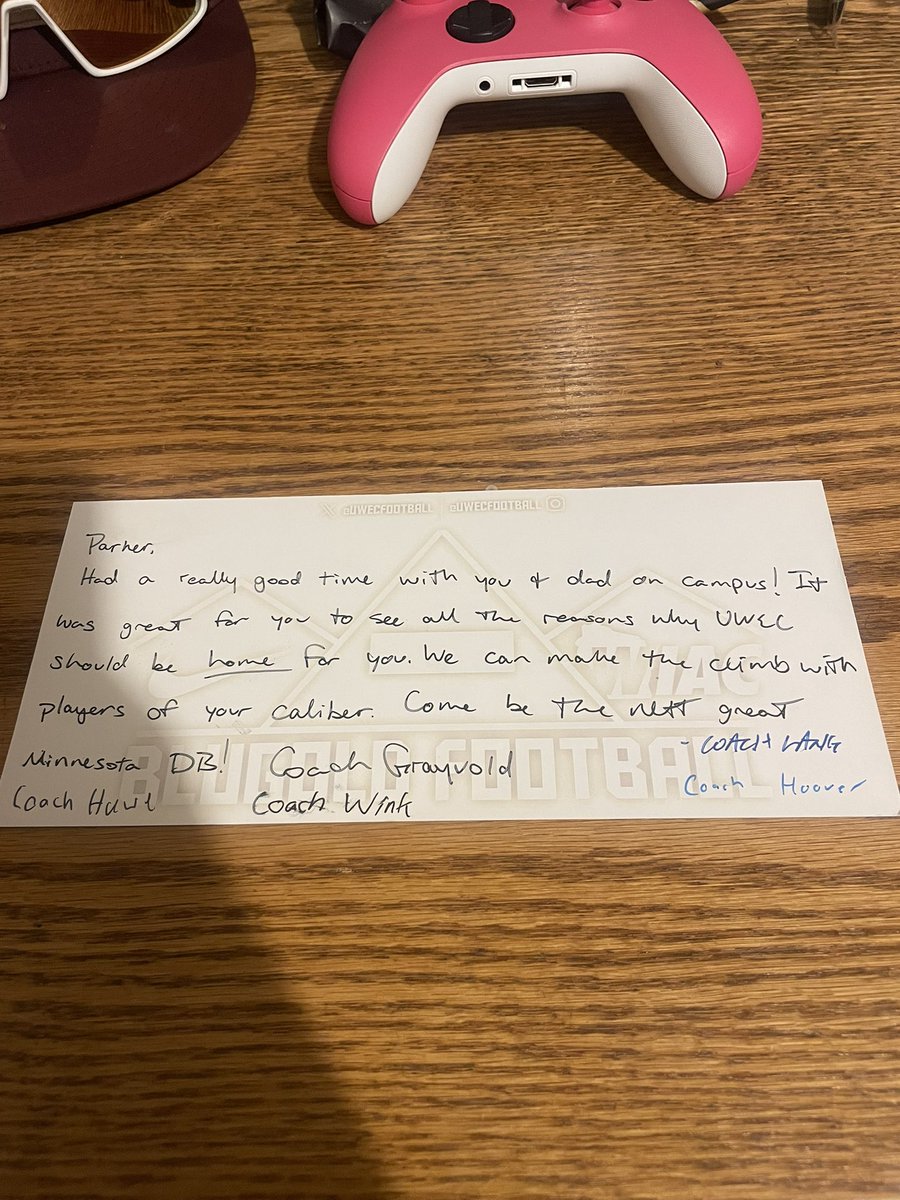 @UWECFOOTBALL @UWECFOOTBALL
Parker,
Had a really good time with you & dad on campus! It
was great for you to see all the reasons why UWEC
should be home for you. We can make the climb with
players of your caliber. Come be the next great
Minnesota DB! Coach Grayvold
- COACH LANG
Coach Huwe Coach Wink
Coach Hoover
WIAC
BLUGOLD FOOTBALL